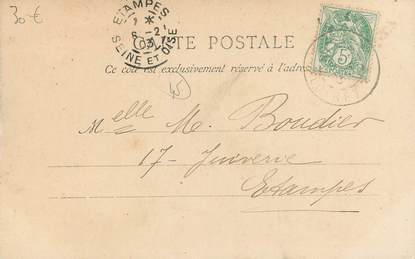 30 €
ETAMPES
6 - 2
03
SEINE ET OISE
CARTE POSTALE
Ce côté est exclusivement réservé à l'adresse
5
45
Melle M. Boudier
17 - Juiverie
Etampes